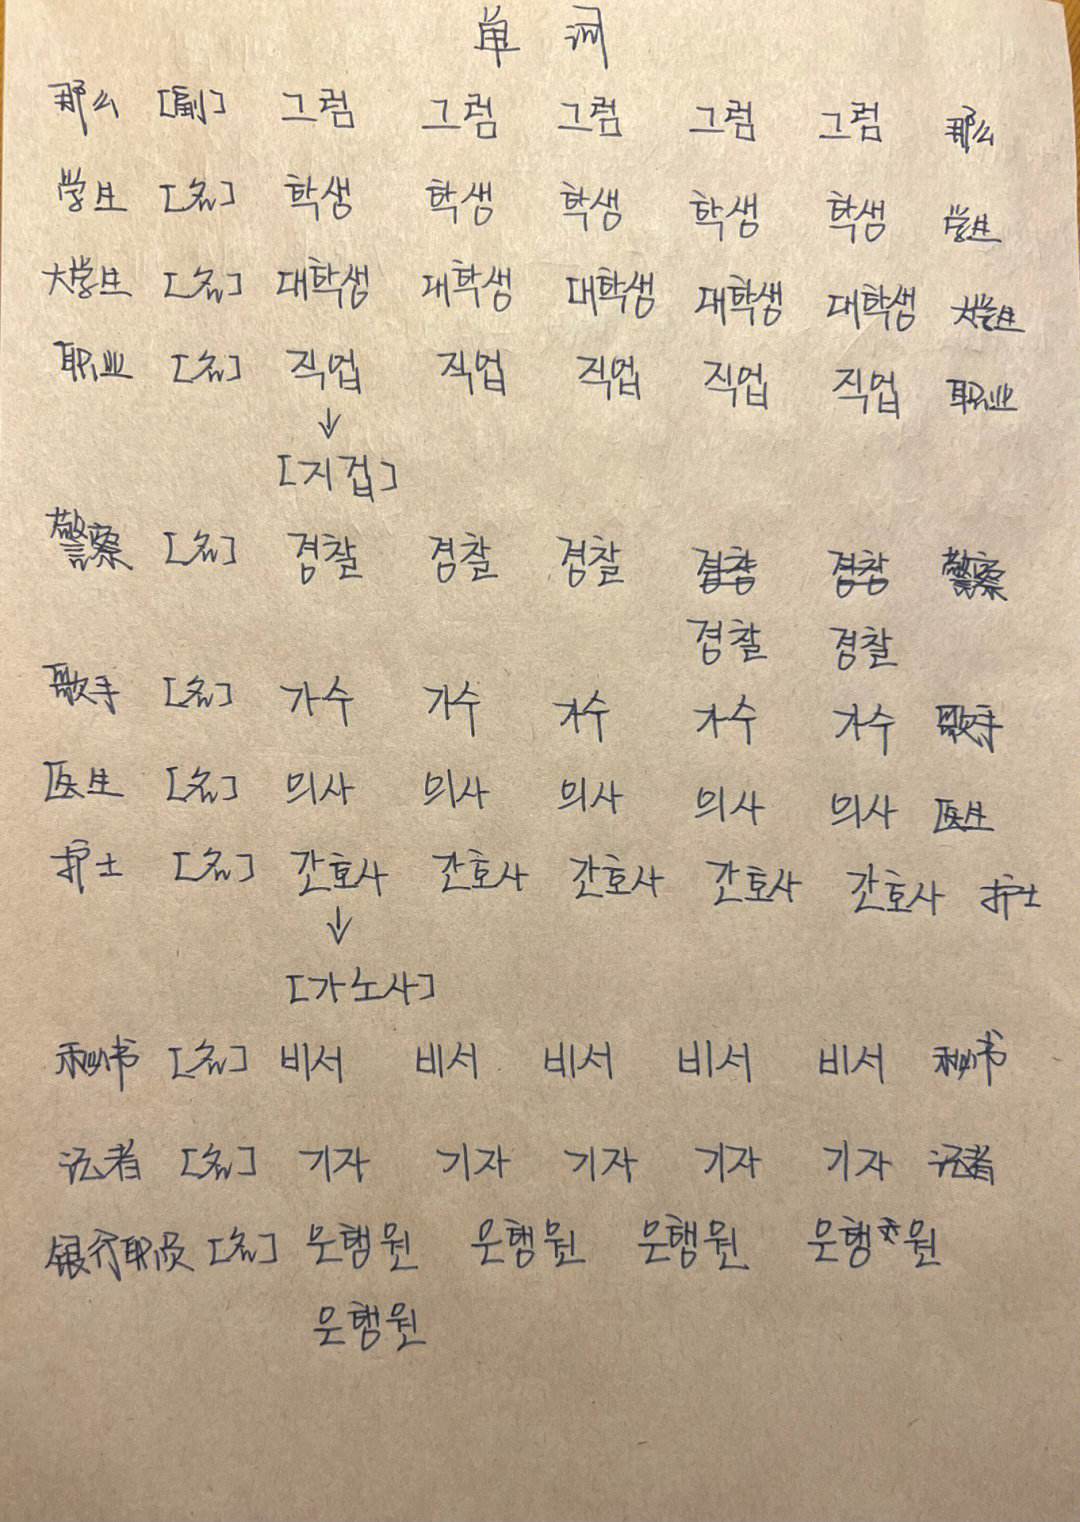 单词
那么 [副] 그럼 그럼 그럼 그럼 그럼 那么
学生 [名] 학생 학생 학생 학생 학생 学生
大学生 [名] 대학생 대학생 대학생 대학생 대학생 大学生
职业 [名] 직업 직업 직업 직업 직업 职业
↓
[지겁]
警察 [名] 경찰 경찰 경찰 警察
경찰 경찰
歌手 [名] 가수 가수 가수 가수 가수 歌手
医生 [名] 의사 의사 의사 의사 의사 医生
护士 [名] 간호사 간호사 간호사 간호사 간호사 护士
↓
[가노사]
秘书 [名] 비서 비서 비서 비서 비서 秘书
记者 [名] 기자 기자 기자 기자 기자 记者
银行职员 [名] 은행원 은행원 은행원 은행원
은행원